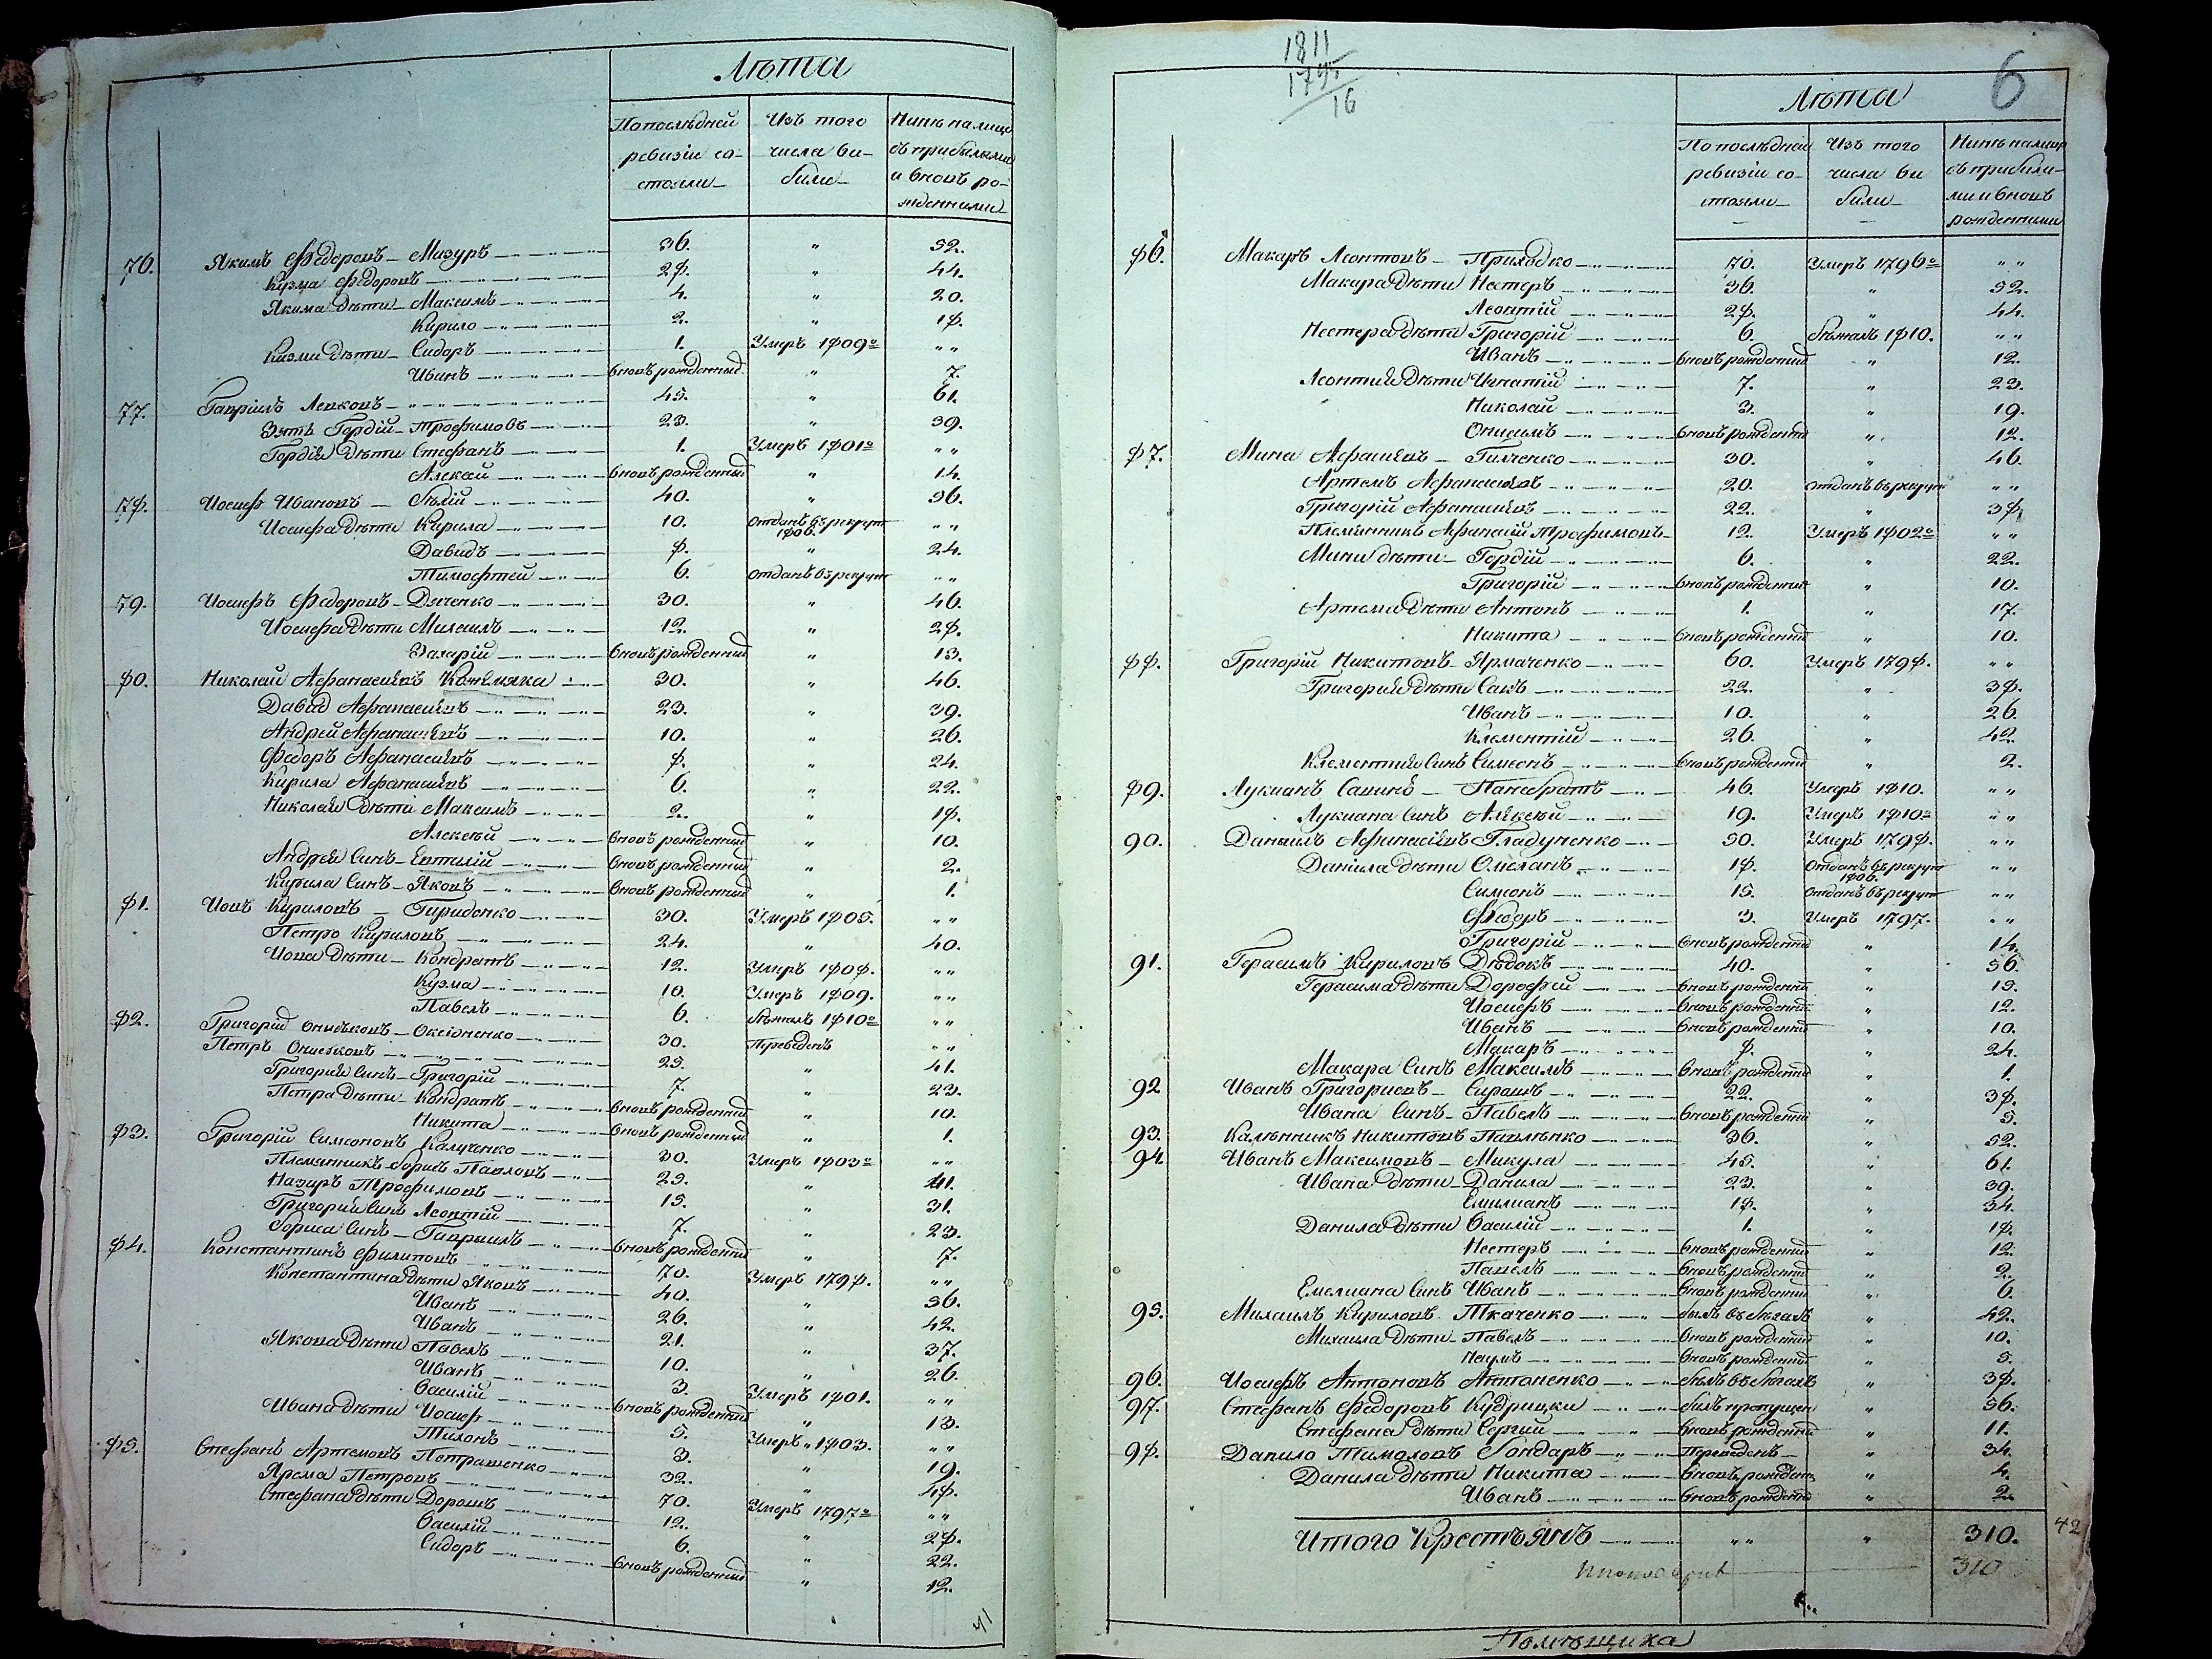 Лѣта
По послѣдней ревизіи со- стояли
Изъ того числа вы- были
Нынѣ на лицо съ прибылыми и вновь ро- жденными
76. Якимъ Федоровъ Мизуръ 36. " 52.
Кузма Федоровъ 28. " 44.
Якима дѣти Максимъ 4. " 20.
Кирило 2. " 18.
Кузми дѣти Сидоръ 1. Умеръ 1809го " "
Иванъ вновь рожденный " 7.
77. Гавріилъ Левковъ 45. " 61.
Зять Гордій Трофимовъ 23. " 39.
Гордія дѣти Стефанъ 1. Умеръ 1801го " "
Алексѣй вновь рожденный " 14.
78. Иосифъ Ивановъ Бѣлій 40. " 56.
Иосифа дѣти Кирила 10. отданъ въ рекрути 1806. " "
Давидъ 8. " 24.
Тимофтей 6. отданъ въ рекрути " "
79. Иосифъ Федоровъ Дяченко 30. " 46.
Иосифа дѣти Михаилъ 12. " 28.
Захарій вновь рожденный " 13.
80. Николай Афанасіевъ Кожемяка 30. " 46.
Давид Афанасіевъ 23. " 39.
Андрей Афанасіевъ 10. " 26.
Федоръ Афанасіевъ 8. " 24.
Кирила Афанасіевъ 6. " 22.
Николая дѣти Максимъ 2. " 18.
Алексѣй вновь рожденный " 10.
Андрея синъ Евтихій вновь рожденный " 2.
Кирила синъ Яковъ вновь рожденный " 1.
81. Иовъ Кириловъ 30. Умеръ 1805. " "
Петро Кириловъ 24. " 40.
Иова дѣти Кондратъ 12. Умеръ 1808. " "
Кузма 10. Умеръ 1809. " "
Павелъ 6. бѣжалъ 1810го " "
82. Григорій 30. Переведенъ " "
Петръ 25. " 41.
Григорія синъ Григорій 7. " 23.
Петра дѣти Кондратъ вновь рожденный " 10.
Никита вновь рожденный " 1.
83. Григорій Симоновъ Калученко 30. Умеръ 1803го " "
Племянникъ Борисъ Павловъ 25. " 41.
Назаръ Трофимовъ 15. " 31.
Григорія синъ Леонтій 7. " 23.
Бориса синъ Гавриилъ вновь рожденный " 7.
84. Константинъ Филиповъ 70. Умеръ 1798. " "
Константина дѣти Яковъ 40. " 56.
Иванъ 26. " 42.
Иванъ 21. " 37.
Якова дѣти Павелъ 10. " 26.
Иванъ 3. Умеръ 1801. " "
Василій вновь рожденный " 13.
Ивана дѣти Иосиф 5. Умеръ 1803. " "
Тихонъ 3. " 19.
85. Стефанъ Артемовъ Петрашенко 32. " 48.
Ярема Петровъ 70. Умеръ 1797го " "
Стефана дѣти Дорошъ 12. " 28.
Василій 6. " 22.
Сидоръ вновь рожденный " 12.
41
1811
1795
16
6
Лѣта
По послѣдней ревизіи со- стояли
Изъ того числа вы- были
Нынѣ на лицо съ прибылы- ми и вновь рожденными
86. Макаръ Леонтовъ Приходко 70. Умеръ 1796го " "
Макара дѣти Нестеръ 36. " 52.
Леонтій 28. " 44.
Нестера дѣти Григорій 6. бѣжалъ 1810. " "
Иванъ вновь рожденный " 12.
Леонтія дѣти Игнатій 7. " 23.
Николай 3. " 19.
Онисимъ вновь рожденный " 12.
87. Мина Афанасіевъ 30. " 46.
Артемъ Афанасіевъ 20. отданъ въ рекрути " "
Григорій Афанасіевъ 22. " 38.
Племянникъ Афанасій Трофимовъ 12. Умеръ 1802го " "
Мини дѣти Гордій 6. " 22.
Григорій вновь рожденный " 10.
Артема дѣти Антонъ 1. " 17.
Никита вновь рожденный " 10.
88. Григорій Никитовъ Ярмаченко 60. Умеръ 1798. " "
Григорія дѣти Савъ 22. " 38.
Иванъ 10. " 26.
Клементій 26. " 42.
Клементія синъ Симеонъ вновь рожденный " 2.
89. Лукианъ Савинъ Панибратъ 46. Умеръ 1810. " "
Лукиана синъ Алексѣй 19. Умеръ 1810го " "
90. Даниилъ Афанасіевъ Гладученко 50. Умеръ 1798. " "
Даніила дѣти Омелянъ 18. отданъ въ рекрути 1806. " "
Симеонъ 15. отданъ въ рекрути " "
Федоръ 3. Умеръ 1797. " "
Григорій вновь рожденный " 14.
91. Герасимъ Кириловъ Дѣдокъ 40. " 56.
Герасима дѣти Дорофей вновь рожденный " 15.
Иосифъ вновь рожденный " 12.
Иванъ вновь рожденный " 10.
Макаръ 8. " 24.
Макара синъ Максимъ вновь рожденный " 1.
92 Иванъ Григориевъ Сирошъ 22. " 38.
Ивана синъ Павелъ вновь рожденный " 5.
93. Калѣнникъ Никитовъ Павлѣнко 36. " 52.
94. Иванъ Максимовъ Микула 45. " 61.
Ивана дѣти Данила 23. " 39.
Емилианъ 18. " 34.
Данила дѣти Василій 1. " 18.
Нестеръ вновь рожденный " 12.
Павелъ вновь рожденный " 2.
Емелиана синъ Иванъ вновь рожденный " 6.
95. Михаилъ Кириловъ Ткаченко былъ въ бѣгахъ " 42.
Михаила дѣти Павелъ вновь рожденный " 10.
Наумъ вновь рожденный " 5.
96. Иосифъ Антоновъ Антоненко былъ въ бѣгахъ " 38.
97. Стефанъ Федоровъ Кудрицки билъ пропущен " 56.
Стефана дѣти Сергій вновь рожденный " 11.
98. Данило Тимоховъ Бондаръ Переведенъ " 34.
Данила дѣти Никита вновь рожденъ " 4.
Иванъ вновь рожденъ " 2.
Итого Крестьянъ " " " 310.
310
42
Помѣщика